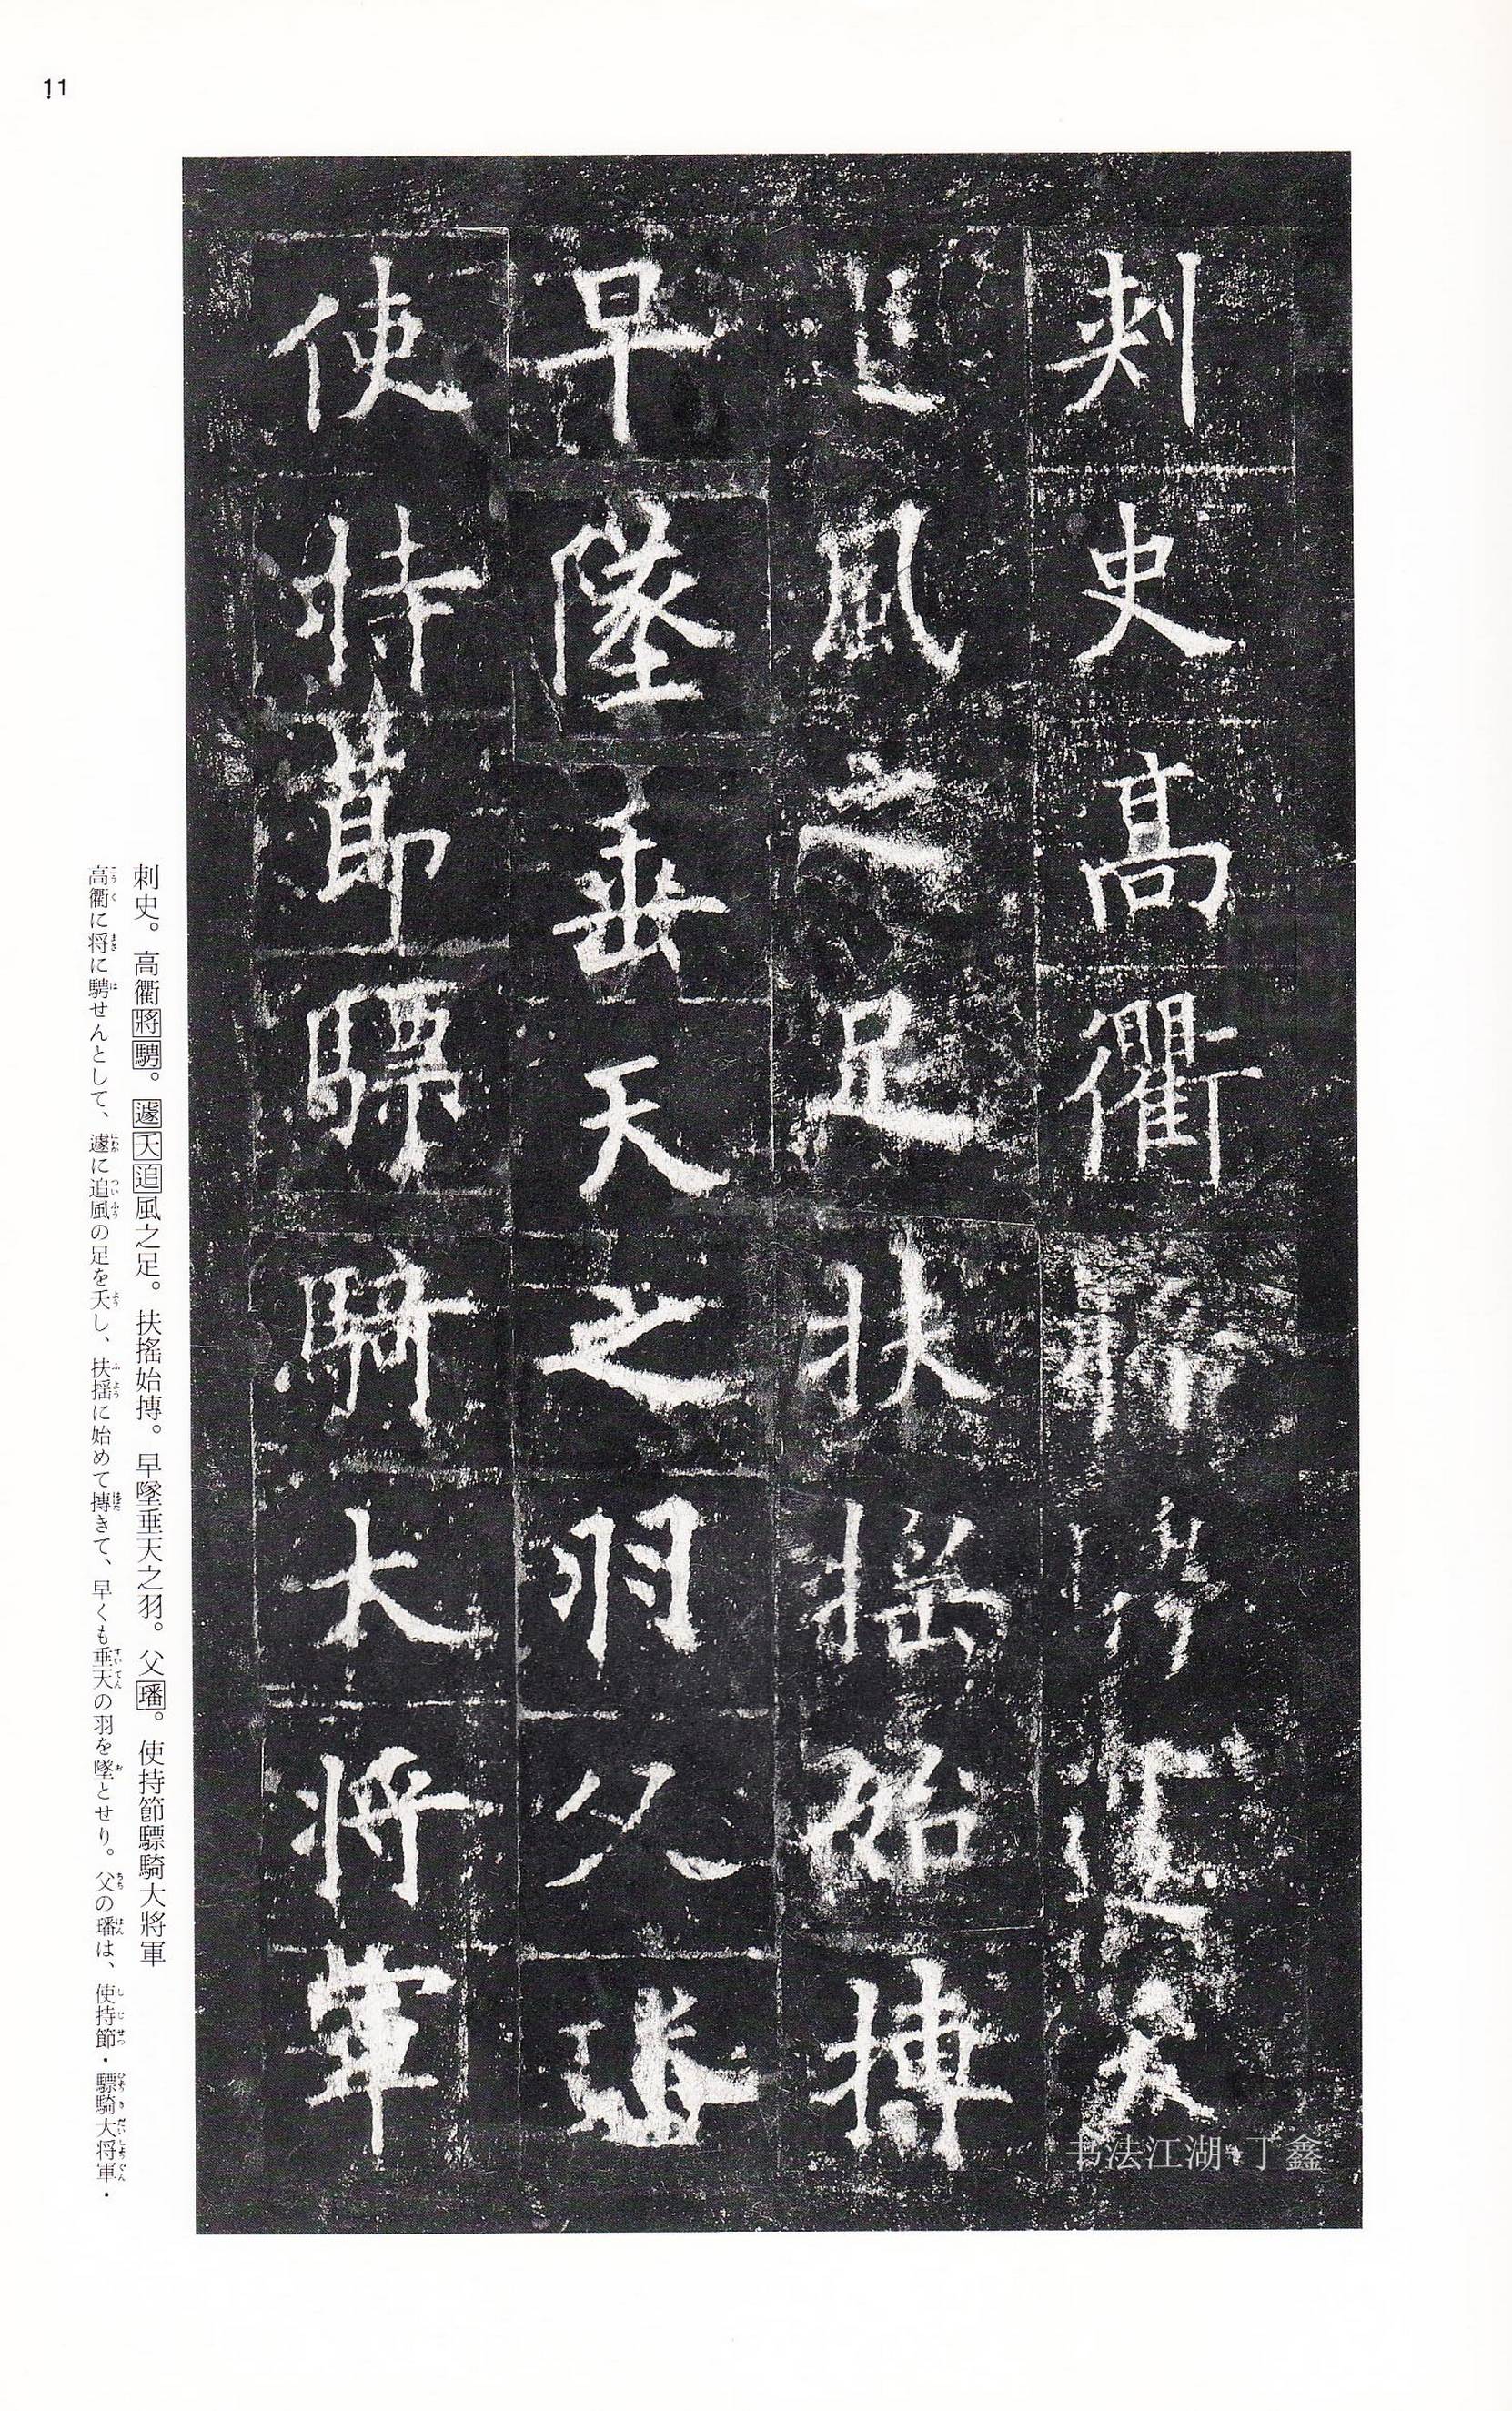 11
刺史高衢將騁遽夭
追風之足扶搖始摶
早墜垂天之羽父璠
使持節驃騎大將軍
书法江湖 丁鑫
刺史。高衢將騁。遽夭追風之足。扶搖始摶。早墜垂天之羽。父璠。使持節驃騎大將軍
高衢に将に騁せんとして、遽に追風の足を夭し、扶揺に始めて摶きて、早くも垂天の羽を墜とせり。父の璠は、使持節・驃騎大将軍・